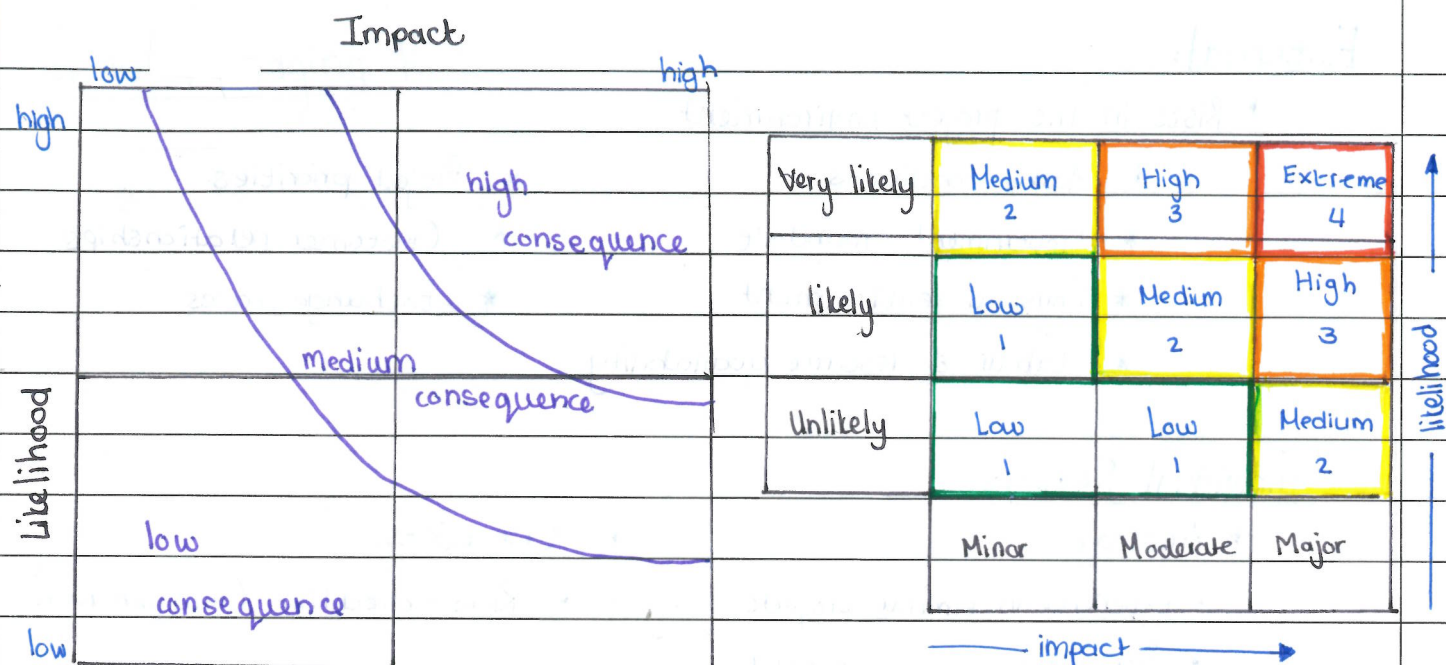 Impact
low
high
high
high
consequence
medium
consequence
Likelihood
low
consequence
low
Very likely
Medium
2
High
3
Extreme
4
likely
Low
1
Medium
2
High
3
Unlikely
Low
1
Low
1
Medium
2
Minor
Moderate
Major
likelihood
impact